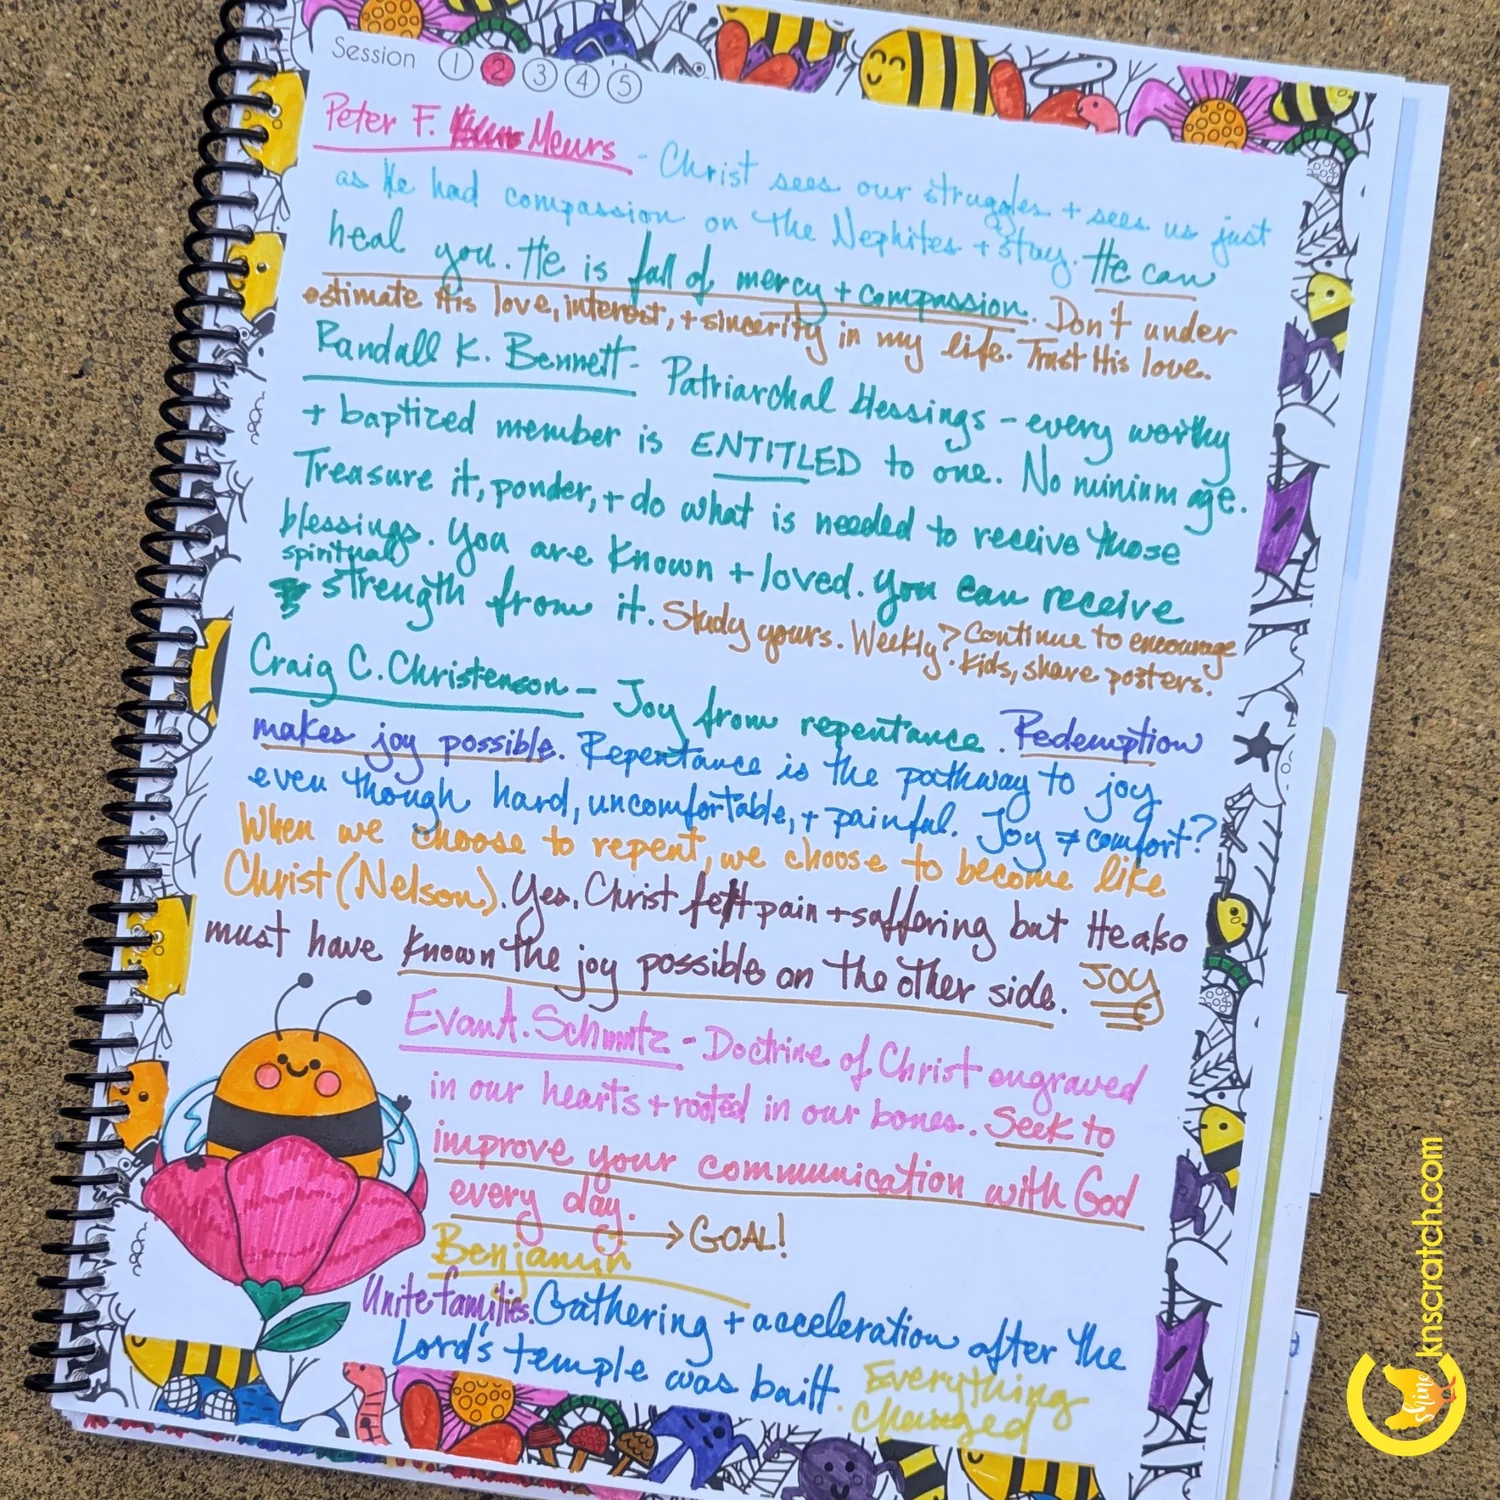 Session 1 2 3 4 5
Peter F. Meurs - Christ sees our struggles + sees us just
as He had compassion on the Nephites + stay. He can
heal you. He is full of mercy + compassion. Don't under
estimate His love, interest, + sincerity in my life. Trust His love.
Randall K. Bennett - Patriarchal blessings - every worthy
+ baptized member is ENTITLED to one. No minium age.
Treasure it, ponder, + do what is needed to receive those
blessings. You are known + loved. You can receive
spiritual
strength from it. Study yours. Weekly? Continue to encourage
kids, share posters.
Craig C. Christenson - Joy from repentance. Redemption
makes joy possible. Repentance is the pathway to joy
even though hard, uncomfortable, + painful. Joy ≠ comfort?
When we choose to repent, we choose to become like
Christ (Nelson). Yes, Christ felt pain + suffering but He also
must have known the joy possible on the other side. JOY
Evan A. Schmutz - Doctrine of Christ engraved
in our hearts + rooted in our bones. Seek to
improve your communication with God
every day. → GOAL!
Benjamin
Unite families. Gathering + acceleration after the
Lord's temple was built. Everything
changed
shine
knscratch.com